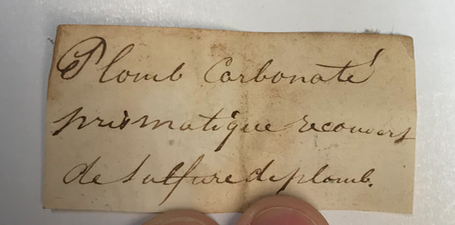 Plomb Carbonaté
prismatique recouvert
de Sulfure de plomb.